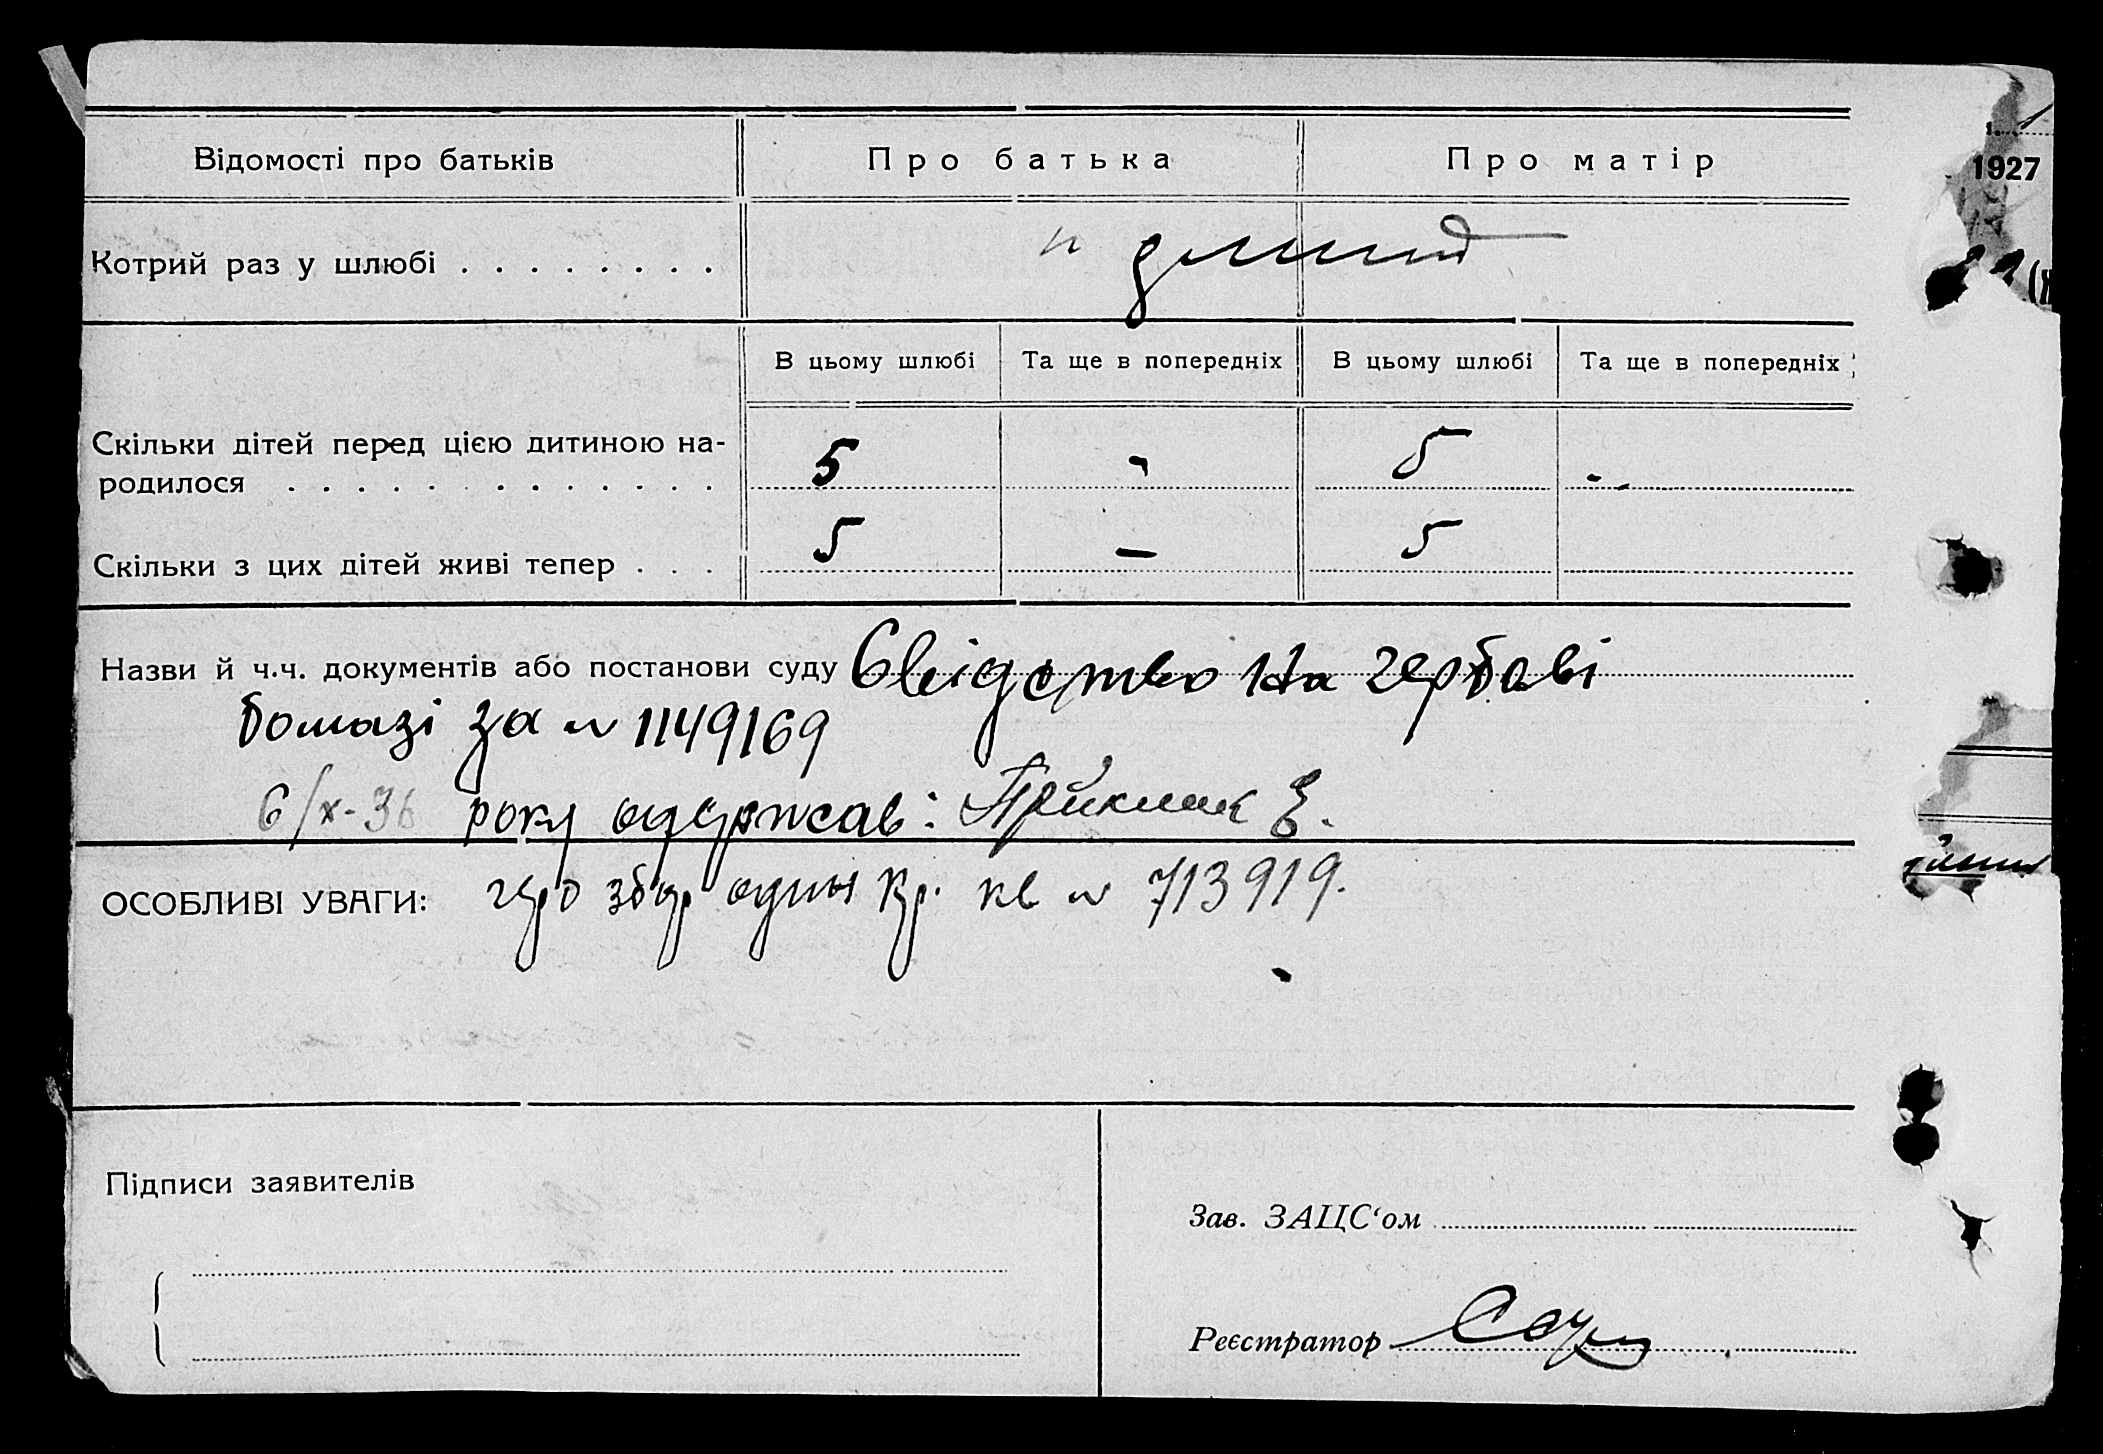 Відомості про батьків Про батька Про матір
1927
Котрий раз у шлюбі
В цьому шлюбі Та ще в попередніх В цьому шлюбі Та ще в попередніх
Скільки дітей перед цією дитиною на-
родилося 5 - 5 -
Скільки з цих дітей живі тепер 5 — 5
Назви й ч.ч. документів або постанови суду Свідоцтво на гербові
бомазі за № 1149169
6/X-36 року одержав:
ОСОБЛИВІ УВАГИ: герб збор один кр. кв № 713919.
Підписи заявителів
Зав. ЗАЦС‘ом
Реєстратор